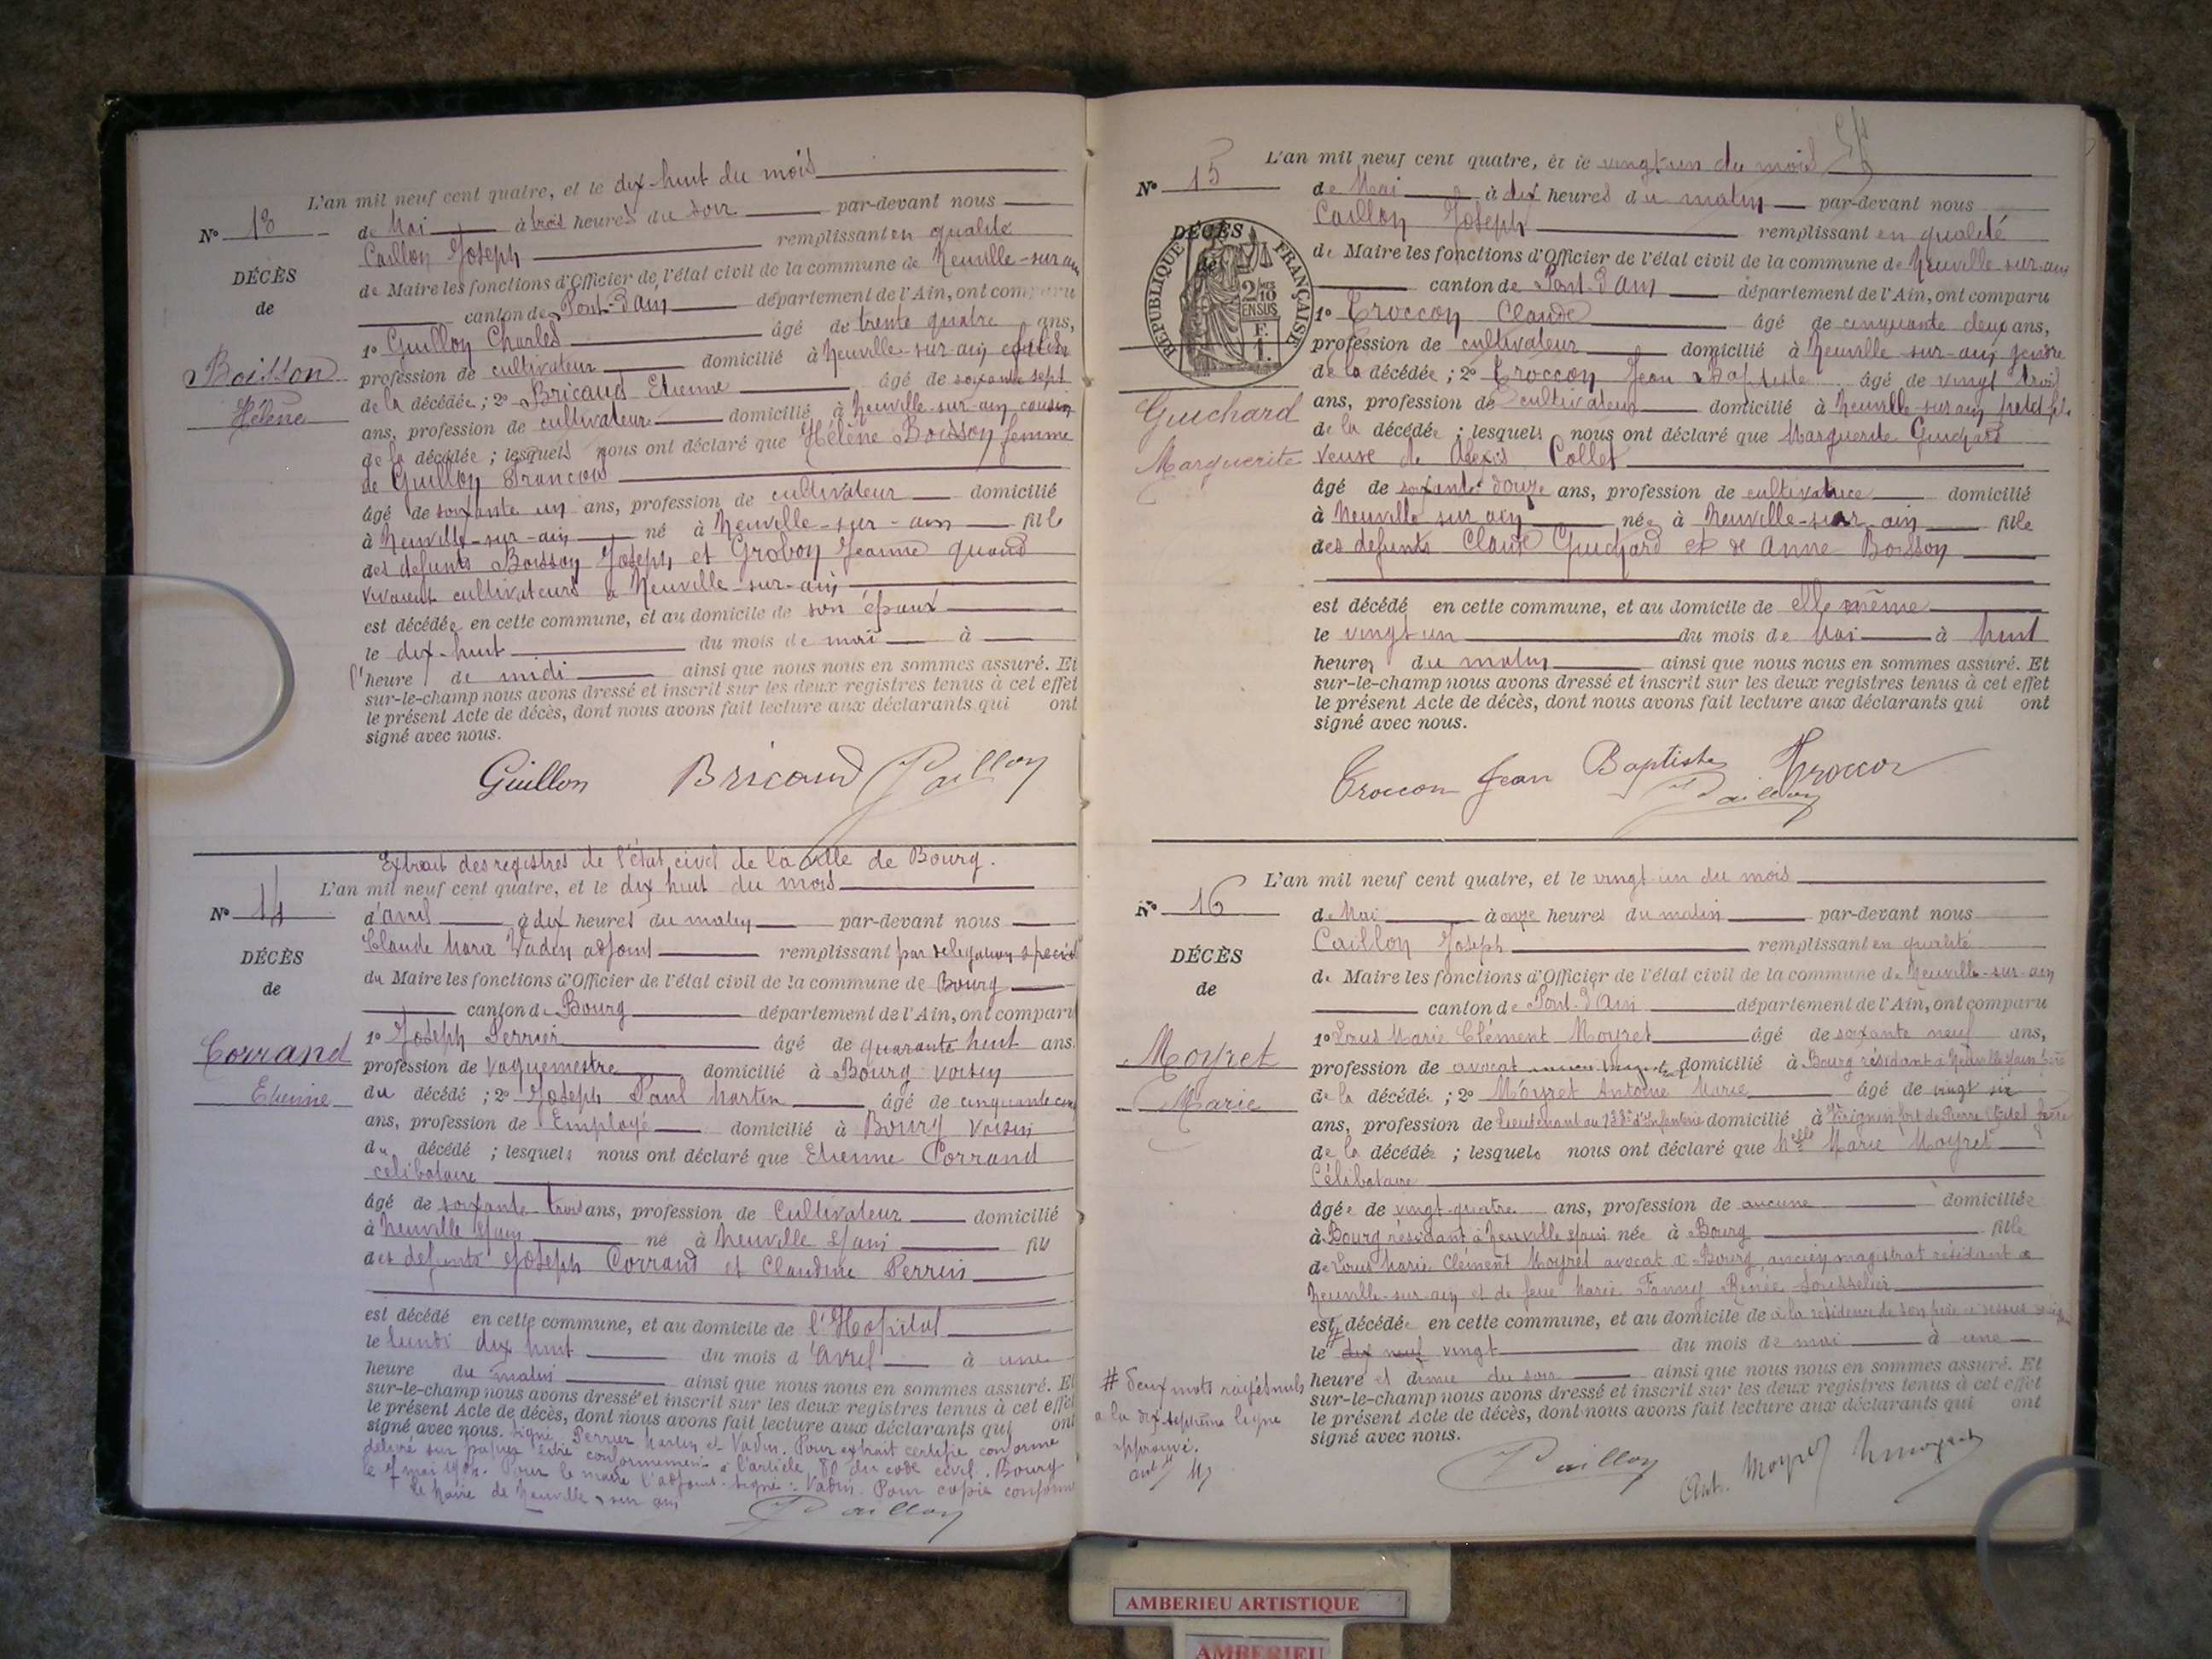 L'an mil neuf cent quatre, et le dix-huit du mois
N° 13 de Mai à trois heures du soir par-devant nous
Caillon Joseph remplissant en qualité
DÉCÈS
de Maire les fonctions d'Officier de l'état civil de la commune de Neuville-sur-ain
de
canton de Pont-d'ain département de l'Ain, ont comparu
1° Guillon Charles âgé de trente quatre ans,
Boisson
Hélène
profession de cultivateur domicilié à Neuville-sur-ain
de la décédée ; 2° Bricaud Etienne âgé de soixante sept
ans, profession de cultivateur domicilié à Neuville-sur-ain cousin
de la décédée ; lesquels nous ont déclaré que Hélène Boisson femme
de Guillon François
âgé de soixante un ans, profession de cultivateur domicilié
à Neuville-sur-ain né à Neuville-sur-ain fille
des defunts Boisson Joseph et Grobon Jeanne quand
vivaient cultivateurs à Neuville-sur-ain
est décédée en cette commune, et au domicile de son époux
le dix-huit du mois de mai à
l'heure de midi ainsi que nous nous en sommes assuré. Et
sur-le-champ nous avons dressé et inscrit sur les deux registres tenus à cet effet
le présent Acte de décès, dont nous avons fait lecture aux déclarants qui ont
signé avec nous.
Guillon Bricaud Caillon
Extrait des registres de l'état civil de la ville de Bourg.
L'an mil neuf cent quatre, et le dix huit du mois
N° 14 d'avril à dix heures du matin par-devant nous
Claude Marie Vadin adjoint remplissant par délégation spéciale
DÉCÈS
du Maire les fonctions d'Officier de l'état civil de la commune de Bourg
de
canton de Bourg département de l'Ain, ont comparu
1° Joseph Perrier âgé de quarante huit ans.
Corrand
Etienne
profession de Vaguemestre domicilié à Bourg voisin
du décédé ; 2° Joseph Paul Martin âgé de cinquante cinq
ans, profession de Employé domicilié à Bourg voisin
du décédé ; lesquels nous ont déclaré que Etienne Corrand
célibataire
âgé de soixante trois ans, profession de Cultivateur domicilié
à Neuville s/ain né à Neuville s/ain fils
des defunts Joseph Corrand et Claudine Perrin
est décédé en cette commune, et au domicile de l'Hopital
le lundi dix huit du mois d'avril à une
heure du matin ainsi que nous nous en sommes assuré. Et
sur-le-champ nous avons dressé et inscrit sur les deux registres tenus à cet effet
le présent Acte de décès, dont nous avons fait lecture aux déclarants qui ont
signé avec nous. Signé Perrier Martin et Vadin. Pour extrait certifié conforme
délivré sur papier libre conformément à l'article 80 du code civil. Bourg
le 7 mai 1904. Pour le maire l'adjoint. Signé : Vadin. Pour copie conforme
le Maire de Neuville sur ain
Caillon
L'an mil neuf cent quatre, et le vingt-un du mois
N° 15 de Mai à dix heures du matin par-devant nous
Caillon Joseph remplissant en qualité
DÉCÈS
de
RÉPUBLIQUE FRANÇAISE
2 MES
10
EN SUS
F.
1.
de Maire les fonctions d'Officier de l'état civil de la commune de Neuville-sur-ain
canton de Pont-d'Ain département de l'Ain, ont comparu
1° Troccon Claude âgé de cinquante deux ans,
profession de cultivateur domicilié à Neuville-sur-ain gendre
de la décédée ; 2° Troccon Jean Baptiste âgé de vingt trois
Guichard
Marguerite
ans, profession de cultivateur domicilié à Neuville-sur-ain petit fils
de la décédée ; lesquels nous ont déclaré que Marguerite Guichard
veuve de Alexis Collet
âgé de soixante douze ans, profession de cultivatrice domicilié
à Neuville sur ain née à Neuville-sur-ain fille
des defunts Claude Guichard et de Anne Boisson
est décédé en cette commune, et au domicile de elle même
le vingt-un du mois de Mai à huit
heures du matin ainsi que nous nous en sommes assuré. Et
sur-le-champ nous avons dressé et inscrit sur les deux registres tenus à cet effet
le présent Acte de décès, dont nous avons fait lecture aux déclarants qui ont
signé avec nous.
Troccon Jean Baptiste Troccon
Caillon
L'an mil neuf cent quatre, et le vingt-un du mois
N° 16 de Mai à onze heures du matin par-devant nous
Caillon Joseph remplissant en qualité
DÉCÈS
de Maire les fonctions d'Officier de l'état civil de la commune de Neuville-sur-ain
de
canton de Pont-d'Ain département de l'Ain, ont comparu
1° Louis Marie Clément Moyret âgé de soixante neuf ans,
Moyret
Marie
profession de avocat domicilié à Bourg résidant à Neuville s/ain père
de la décédée ; 2° Moyret Antoine Marie âgé de vingt six
ans, profession de Lieutenant au 133e d'Infanterie domicilié à Virignin fort de Pierre Chatel frère
de la décédée ; lesquels nous ont déclaré que Melle Marie Moyret
Célibataire
âgée de vingt-quatre ans, profession de aucune domiciliée
à Bourg résidant à Neuville s/ain née à Bourg fille
de Louis Marie Clément Moyret avocat à Bourg, ancien magistrat résidant à
Neuville-sur-ain et de feue Marie Fanny Renée Sousselier
est décédée en cette commune, et au domicile de à la résidence de son père ci dessus
le # dix neuf vingt du mois de mai à une
heure et demie du soir ainsi que nous nous en sommes assuré. Et
sur-le-champ nous avons dressé et inscrit sur les deux registres tenus à cet effet
le présent Acte de décès, dont nous avons fait lecture aux déclarants qui ont
signé avec nous.
# deux mots rayés nuls
a la dix-septième ligne
approuvé.
Caillon Ant. Moyret
AMBERIEU ARTISTIQUE
AMBERIEU